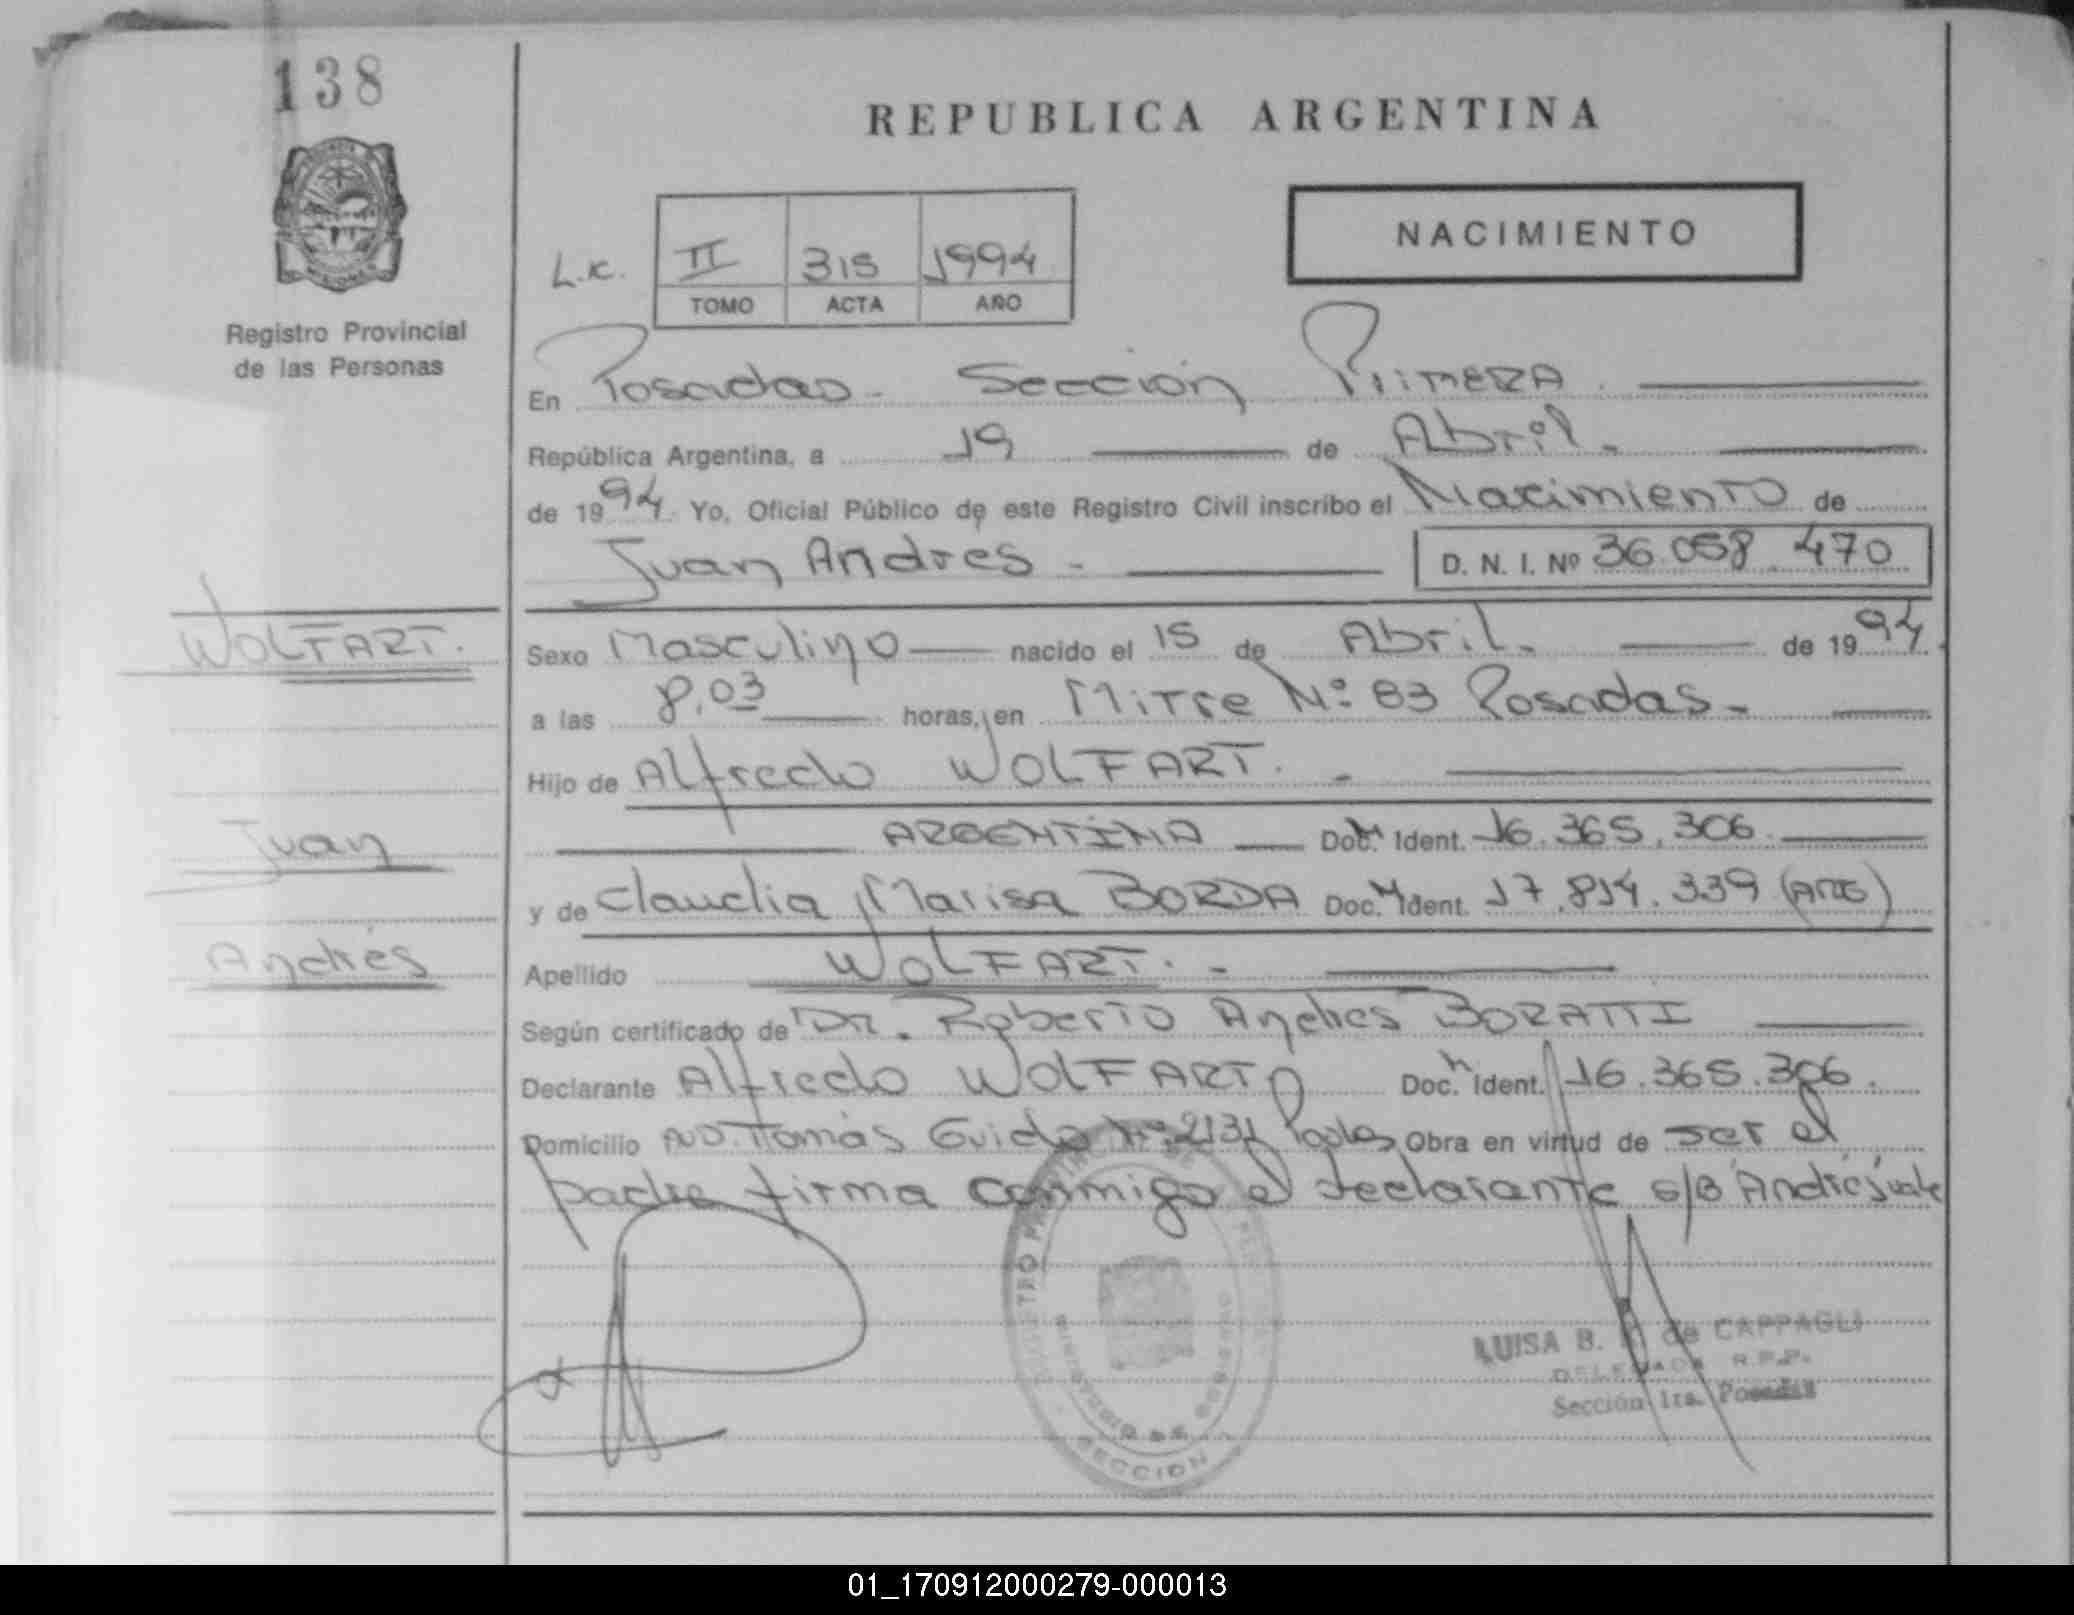 138
REPUBLICA ARGENTINA
NACIMIENTO
L.K. II 315 1994
TOMO ACTA AÑO
Registro Provincial
de las Personas
En Posadas - Sección Primera
República Argentina, a 19 de Abril -
de 1994 Yo, Oficial Público de este Registro Civil inscribo el Nacimiento de
Juan Andres - D. N. I. Nº 36.058.470
WOLFART.
Sexo Masculino nacido el 15 de Abril - de 1994
a las 8,03 horas, en Mitre Nº 83 Posadas -
Hijo de Alfredo WOLFART. -
Juan
ARGENTINA Doc. Ident. 16.365.306
y de Claudia Marisa BORDA Doc. Ident. 17.814.339 (ARG)
Andrés
Apellido WOLFART. -
Según certificado de DR. Roberto Andres BORATTI
Declarante Alfredo WOLFART Doc. Ident. 16.365.306.
Domicilio Tomás Guido Nº Obra en virtud de ser el
padre firma conmigo el declarante
REGISTRO PROVINCIAL DE LAS PERSONAS
MINISTERIO DE GOBIERNO
SECCION
LUISA B. de CAPPAGLI
DELEGADA R.P.P.
Sección 1ra. Posadas
01_170912000279-000013